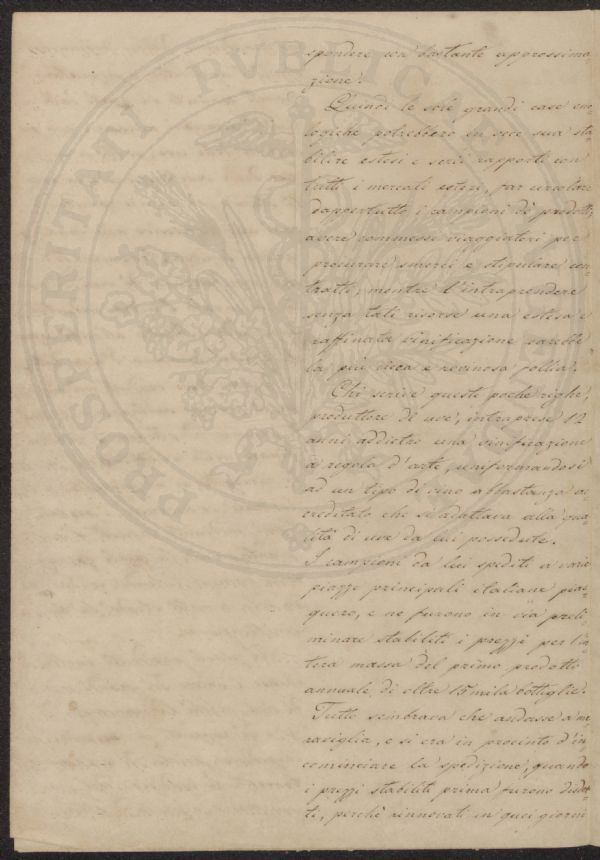 spondere con bastante approssima
zione.
Quindi le sole grandi case eno-
logiche potrebbero in vece sua sta-
bilire estesi e serii rapporti con
tutti i mercati esteri, far circolare
dappertutto i campioni di prodotti,
avere commessi viaggiatori per
procurare smerci e stipulare con-
tratti, mentre l'intraprendere
senza tali risorse una estesa e
raffinata vinificazione sarebbe
la più cieca e rovinosa follia.
Chi scrive queste poche righe,
produttore di uve, intraprese 12
anni addietro una vinificazione
a regola d'arte, uniformandosi
ad un tipo di vino abbastanza ac-
creditato che si adattava alla qua-
lità di uve da lui possedute.
I campioni da lui spediti a varie
piazze principali italiane piac-
quero, e ne furono in via preli-
minare stabiliti i prezzi per l'in-
tera massa del primo prodotto
annuale di oltre 15 mila bottiglie.
Tutto sembrava che andasse a me
raviglia, e si era in procinto d'in
cominciare la spedizione, quando
i prezzi stabiliti prima furono disdet-
ti, perchè rinnovati in quei giorni
PROSPERITATI PVBLIC